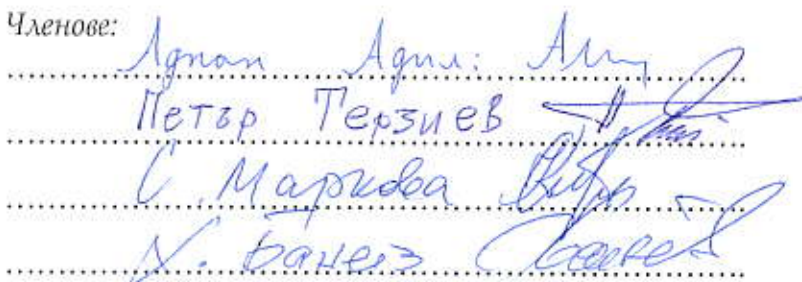 Членове:
Аднан Адил:
Петър Терзиев
С. Маркова
Х. Банев